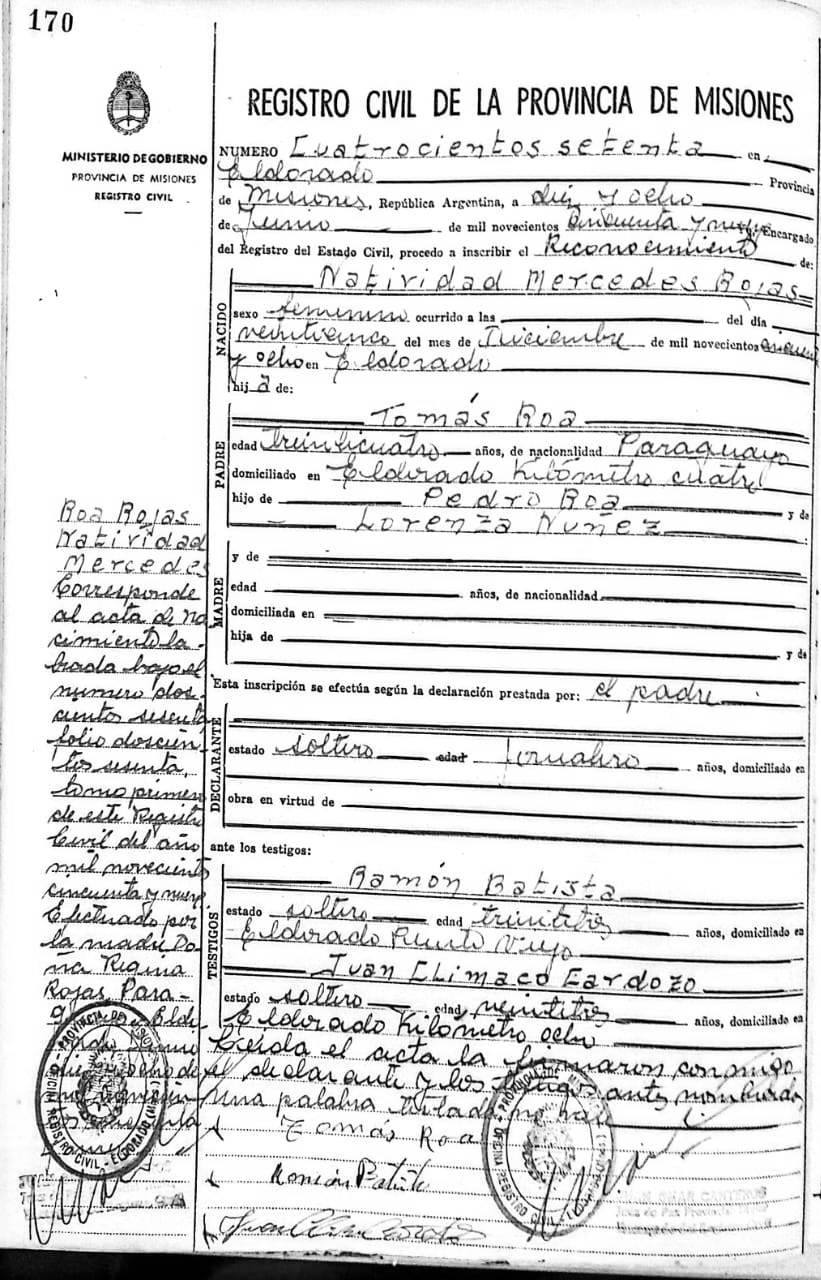 170
REGISTRO CIVIL DE LA PROVINCIA DE MISIONES
MINISTERIO DE GOBIERNO
PROVINCIA DE MISIONES
REGISTRO CIVIL
NUMERO Cuatrocientos setenta en
Eldorado Provincia
de Misiones, República Argentina, a diez y ocho
de Junio de mil novecientos Cincuenta y nueve Encargado
del Registro del Estado Civil, procedo a inscribir el Reconocimiento de:
NACIDO
Natividad Mercedes Rojas
sexo femenino ocurrido a las del día
veinticinco del mes de Diciembre de mil novecientos
y ocho en Eldorado
hija de:
PADRE
Tomás Roa
edad treinticuatro años, de nacionalidad Paraguayo
domiciliado en Eldorado Kilómetro cuatro
hijo de Pedro Roa y de
Lorenza Nuñez
MADRE
y de
edad años, de nacionalidad
domiciliada en
hija de y de
Esta inscripción se efectúa según la declaración prestada por: el padre
DECLARANTE
estado soltero edad jornalero años, domiciliado en
obra en virtud de
ante los testigos:
TESTIGOS
Ramón Batista
estado soltero edad treintitres años, domiciliado en
Eldorado Puerto Viejo
Juan Climaco Cardozo
estado soltero edad veintitres años, domiciliado en
Eldorado Kilómetro ocho
Leida el acta la firmaron conmigo
el declarante y los testigos antes nombrados
Una palabra
Tomás Roa
Ramón Batista
Roa Rojas
Natividad
Mercedes
Corresponde
al acta de na
cimiento la-
brada bajo el
numero dos-
cientos sesenta
folio doscien
tos sesenta,
tomo primero
de este Registro
Civil del año
mil novecientos
cincuenta y nueve
Efectuado por
la madre Do-
ña Regina
Rojas Para-
PROVINCIA DE MISIONES
OFICINA REGISTRO CIVIL - ELDORADO
PROVINCIA DE
OFICINA REGISTRO CIVIL